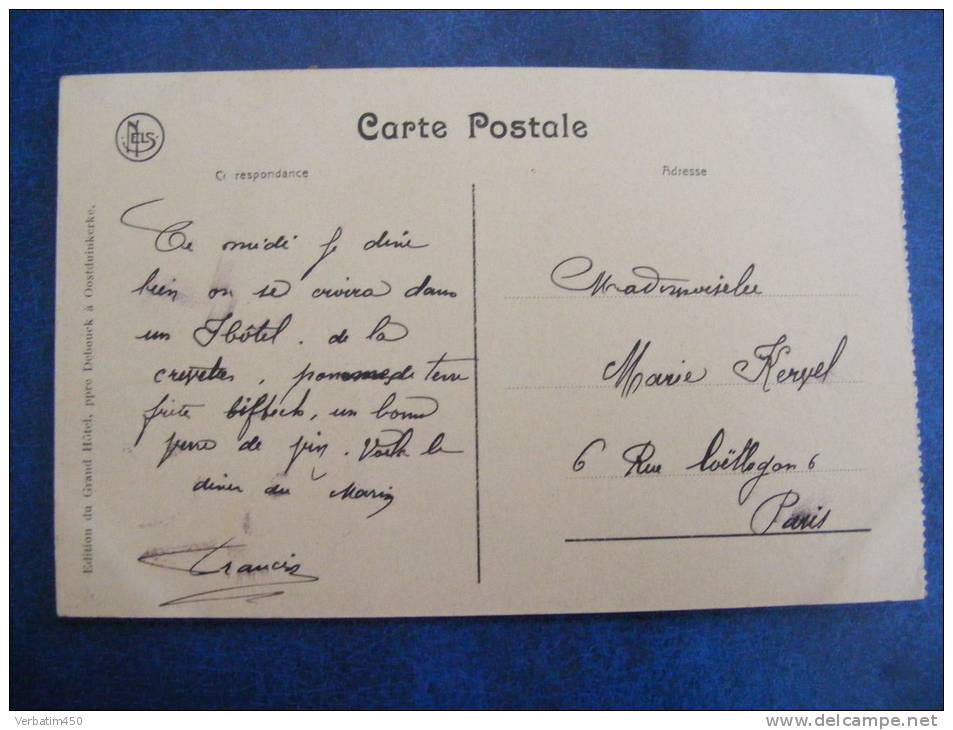 NELS
Carte Postale
Correspondance
Adresse
Edition du Grand Hôtel, ppre Debouck à Oostduinkerke.
Ce midi je dine
bien on se croira dans
un Hôtel. de la
crevettes, pommes de terre
frite bifteck, un bonne
verre de vin. Voila le
diner du Marin
Francis
Mademoiselle
Marie Kervel
6 Rue Coëtlogon 6
Paris
Verbatim450
www.delcampe.net